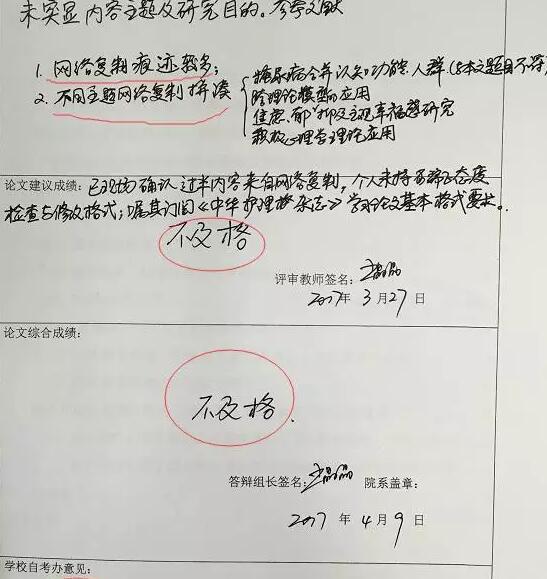 未突显内容主题及研究目的。参考文献
1. 网络复制痕迹较多；
2. 不同主题网络复制拼凑
糖尿病合并认知功能人群(与本文题目不符)
理论模型的应用
焦虑、抑郁及主观幸福感研究
积极心理学理论应用
论文建议成绩：已现场确认过半内容来自网络复制，个人未持否辩正态度
检查与修改格式；嘱其订阅《中华护理杂志》学习论文基本格式要求。
不及格
评审教师签名：
2017年 3月27日
论文综合成绩：
不及格.
答辩组长签名： 院系盖章：
2017 年 4月 9日
学校自考办意见：